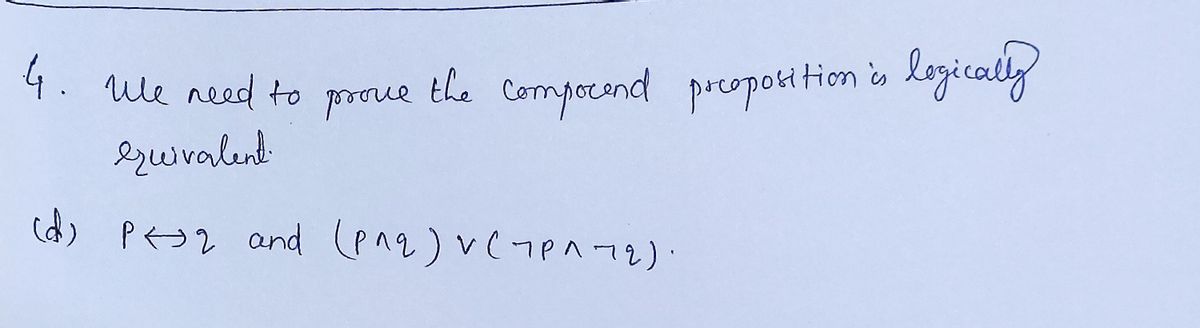 4. We need to prove the compound proposition is logically
equivalent.
(d) p ↔ q and (p ∧ q) ∨ (¬p ∧ ¬q).